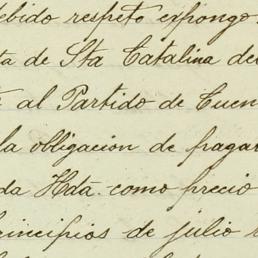 debido respeto expongo:
ta de Sta Catalina del
al Partido de Cuen
la obligacion de pagar
da Hda. como precio
principios de julio